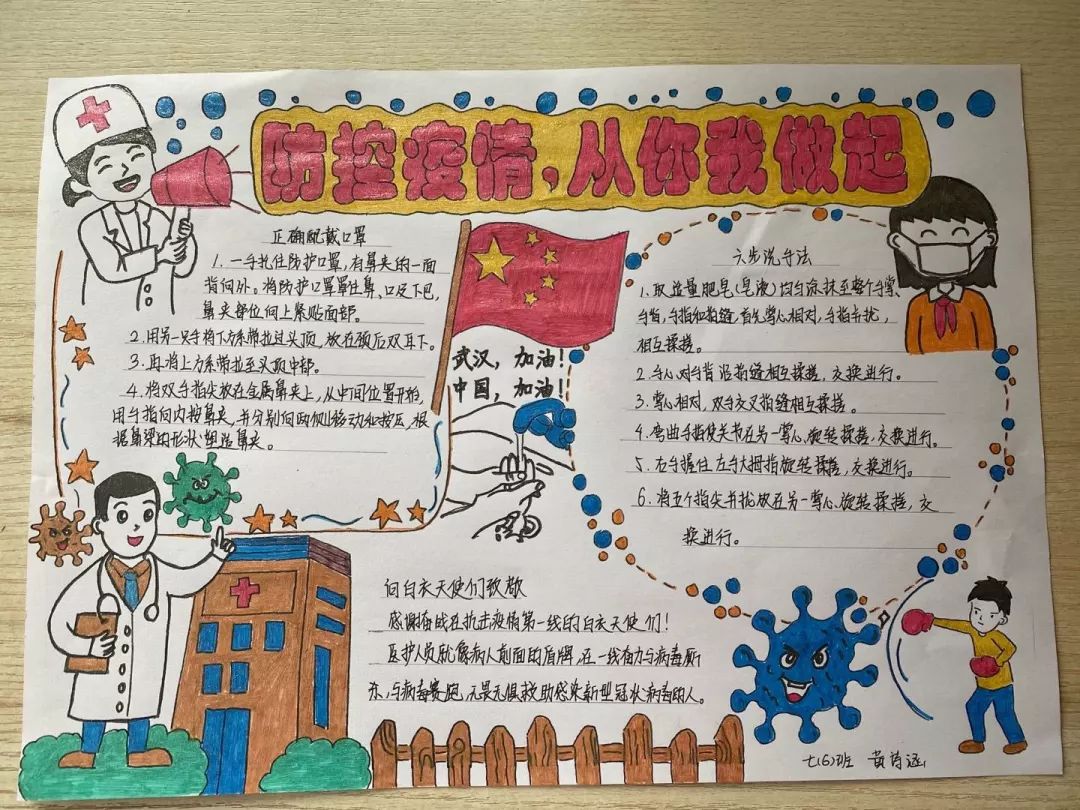 防控疫情,从你我做起
正确配戴口罩
1.一手托住防护口罩,有鼻夹的一面
指向外。将防护口罩罩住鼻、口及下巴,
鼻夹部位向上紧贴面部。
2.用另一只手将下方系带拉过头顶,放在颈后双耳下。
3.再将上方系带拉至头顶中部。
4.将双手指尖放在金属鼻夹上,从中间位置开始,
用手指向内按鼻夹,并分别向两侧移动和按压,根
据鼻梁的形状塑造鼻夹。
武汉,加油!
中国,加油!
六步洗手法
1.取适量肥皂(皂液)均匀涂抹至整个手掌、
手指,手指和指缝,首先掌心相对,手指并拢,
相互揉搓。
2.手心对手背沿指缝相互揉搓,交换进行。
3.掌心相对,双手交叉指缝相互揉搓。
4.弯曲手指使关节在另一掌心旋转揉搓,交换进行。
5.右手握住左手大拇指旋转揉搓,交换进行。
6.将五个指尖并拢放在另一掌心旋转揉搓,交
换进行。
向白衣天使们致敬
感谢奋战在抗击疫情第一线的白衣天使们!
医护人员就像病人前面的盾牌,在一线奋力与病毒厮
杀,与病毒赛跑,无畏无惧救助感染新型冠状病毒的人。
七(6)班 黄诗涵